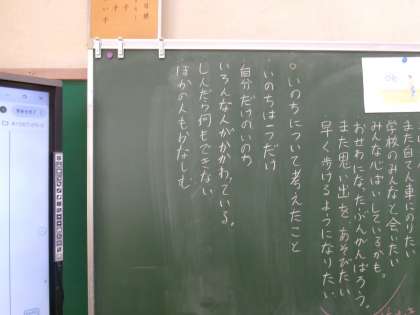 また自てん車にのりたい
学校のみんなと会いたい
みんな心ぱいしているかも。
おせわになったぶんがんばろう。
また思い出を、あそびたい
早く歩けるようになりたい
○いのちについて考えたこと
・いのちは一つだけ
自分だけのいのち
いろんな人がかかわっている。
しんだら何もできない
ほかの人もかなしむ